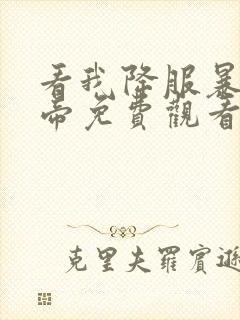 看我降服暴
帝免費觀看
克里夫羅賓遜